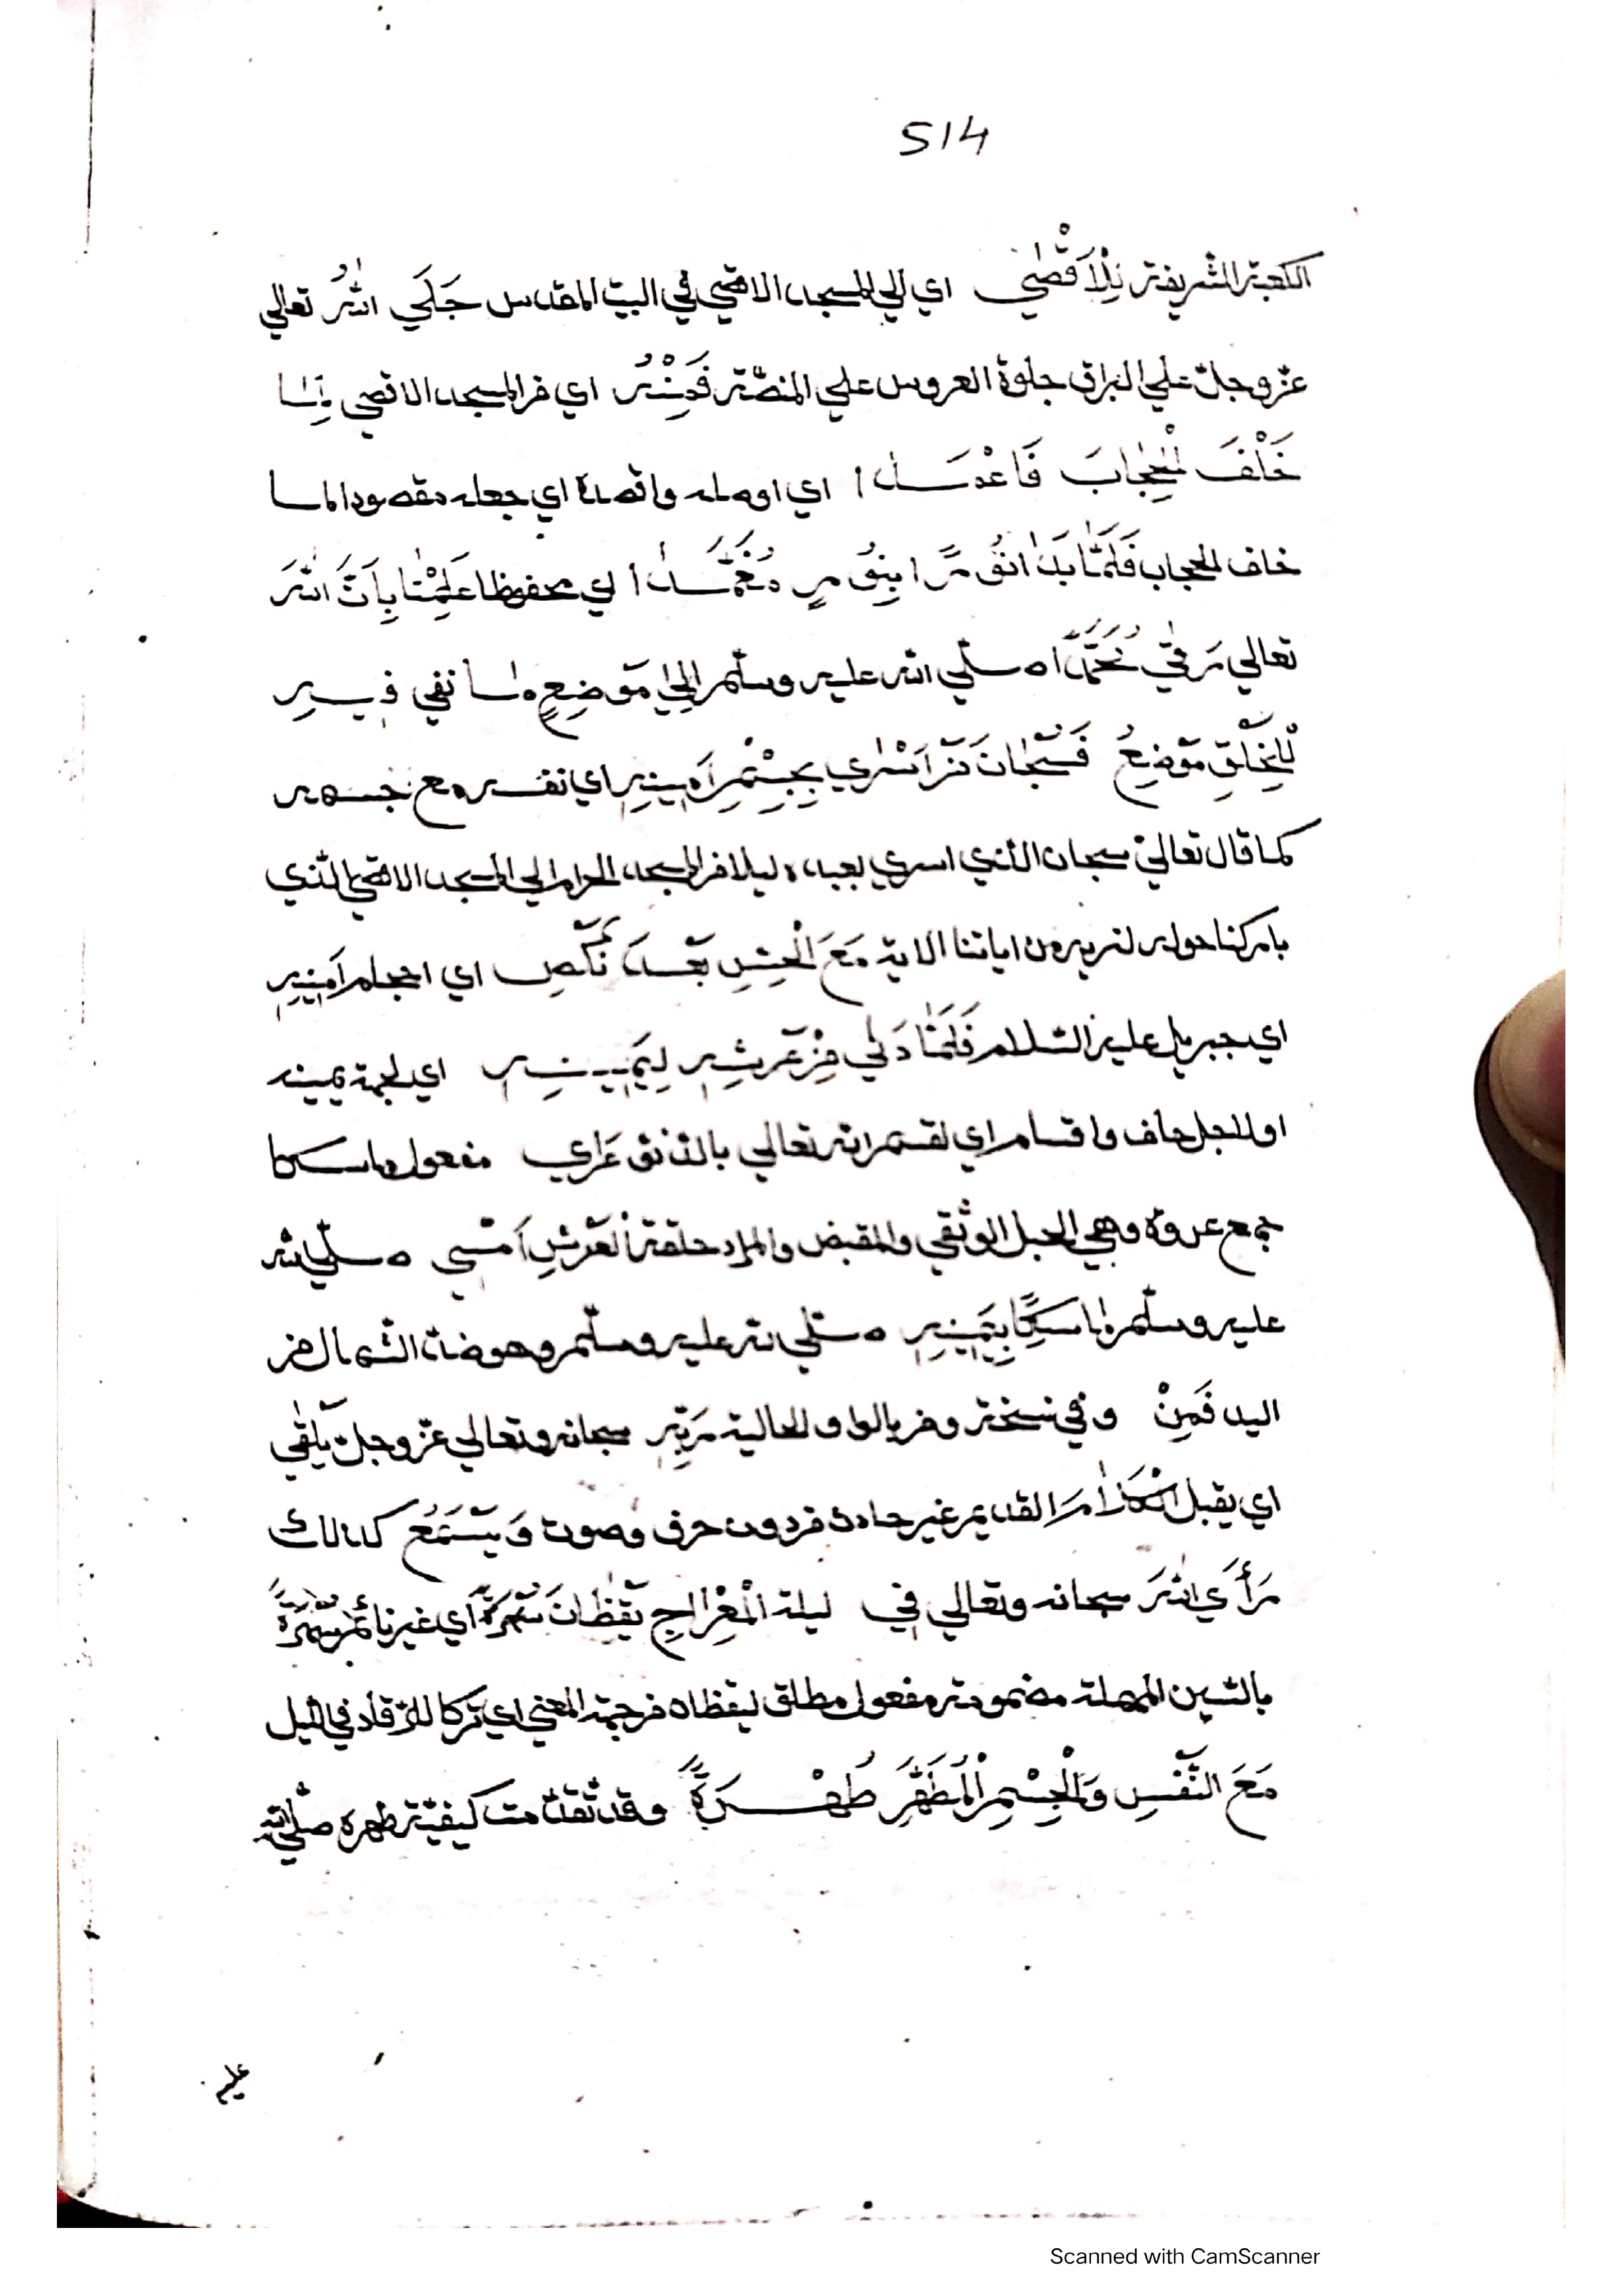 514
الكعبة الشريفة لِلْاَقْصٰي اي الي المسجد الاقصي في البيت المقدس جَلَي اللهُ تعالي
عز وجل علي البراق جلوة العروس علي المنصّة فَمِنْهُ اي من المسجد الاقصي لِمَا
خَلْفَ الْحِجٰابَ فَاعْمَدا اي اوصله واقصده اي جعله مقصودا لما
خلف الحجاب فَلَمَّا بَدَا مُحَمَّدا اي محفوظا عَلِمْنَا بِاَنَّ اللهَ
تعالي رَقّي مُحَمَّداً صلّي الله عليه وسلّم الٰي مَوْضِعٍ ما نفي فيه
لِلْخَلْقِ مَوْضِعُ فَسُبْحَانَ مَنْ اَسْرٰي بِجِسْمِ اَمِينِهِ اي نفسه مع جسمه
كما قال تعالي سبحان الذي اسري بعبده ليلا من المسجد الحرام الي المسجد الاقصي الذي
باركنا حوله لنريه من اياتنا الاية مَعَ الْحِسِّ بَعْدَ اي اجلم اَمِينِهِ
اي جبريل عليه السلام فَلَمَّا دَنٰي مِنْ عَرْشِهِ لِيَمِينِهِ اي لجهة يمينه
او للجل حلف واقسام اي لقسم الله تعالي بالذنق عَرَاي مفعول ماسكا
جمع عروة وهي الحبل الوثقي والمقبض والمراد حلقة الْعَرْشِ اَمْسٰي صلّي الله
عليه وسلّم مَاسِكًا بِيَمِينِهِ صلّي الله عليه وسلّم وهو ضد الشمال من
اليد فَمِنْ وفي نسخة ومن بالواو الحالية رَبِّهِ سبحانه وتعالي عز وجل يَلْقٰي
اي يقبل الْكَلاٰمَ القديم غير حادث من دون حرف وصوت وَيَسْمَعُ كذالك
رَأَي اللهَ سبحانه وتعالي في ليلة الْمِعْرَاجِ يَقْظَانَ سُهْرَةً اي غير نائم سُهْرَةً
بالسين المهملة مضمومة مفعول مطلق ليقظان من جهة المعني اي تركا للرقاد في اليل
مَعَ النَّفْسِ وَالْجِسْمِ الْمُطَهَّرِ طُهْرَةً وقد تقدمت كيفية طهره صلّي الله
عليه
Scanned with CamScanner